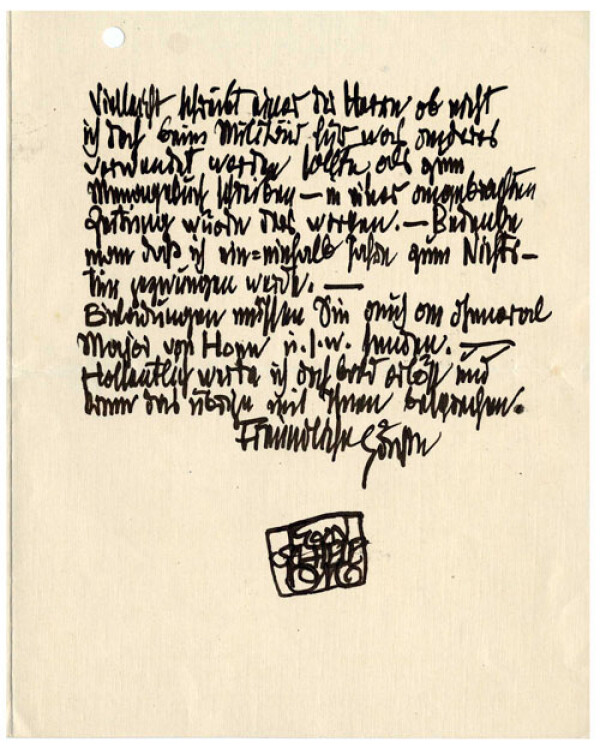 Vielleicht schreibt einer der Herrn ob nicht
ich doch beim Militär für was anderes
verwendet werden sollte als zum
Menagebuch schreiben — in einer angebrachten
Zeitung würde dies wirken. — Bedenke
man daß ich ein=einhalb Jahre zum Nichts–
tun gezwungen werde. —
Einladungen müssen Sie auch an General
Major von Hoen u.s.w. senden. —
Hoffentlich werde ich doch bald erlöst und
kann das übrige mit Ihnen besprechen.
Freundliche Grüße
EGON
SCHIELE
1916